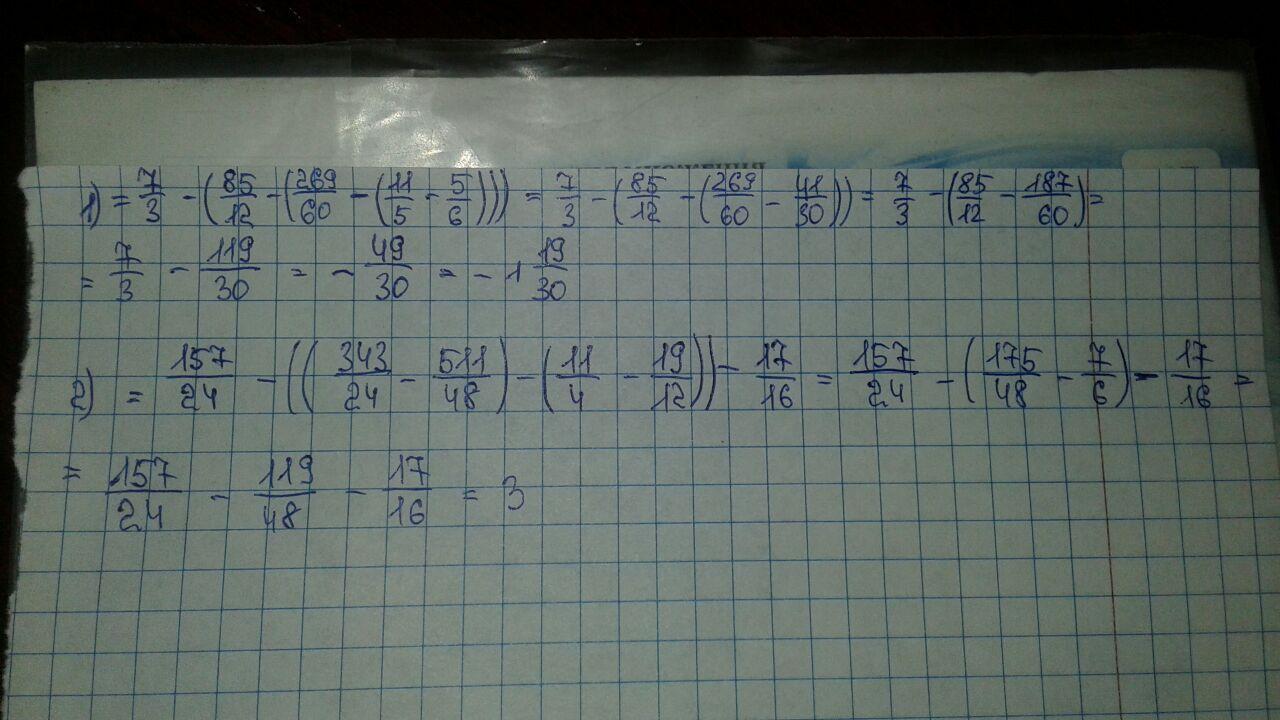 1) = 7/3 - (85/12 - (269/60 - (11/5 - 5/6))) = 7/3 - (85/12 - (269/60 - 41/30)) = 7/3 - (85/12 - 187/60) =
= 7/3 - 119/30 = - 49/30 = - 1 19/30
2) = 157/24 - ((343/24 - 511/48) - (11/4 - 19/12)) - 17/16 = 157/24 - (175/48 - 7/6) - 17/16 =
= 157/24 - 119/48 - 17/16 = 3